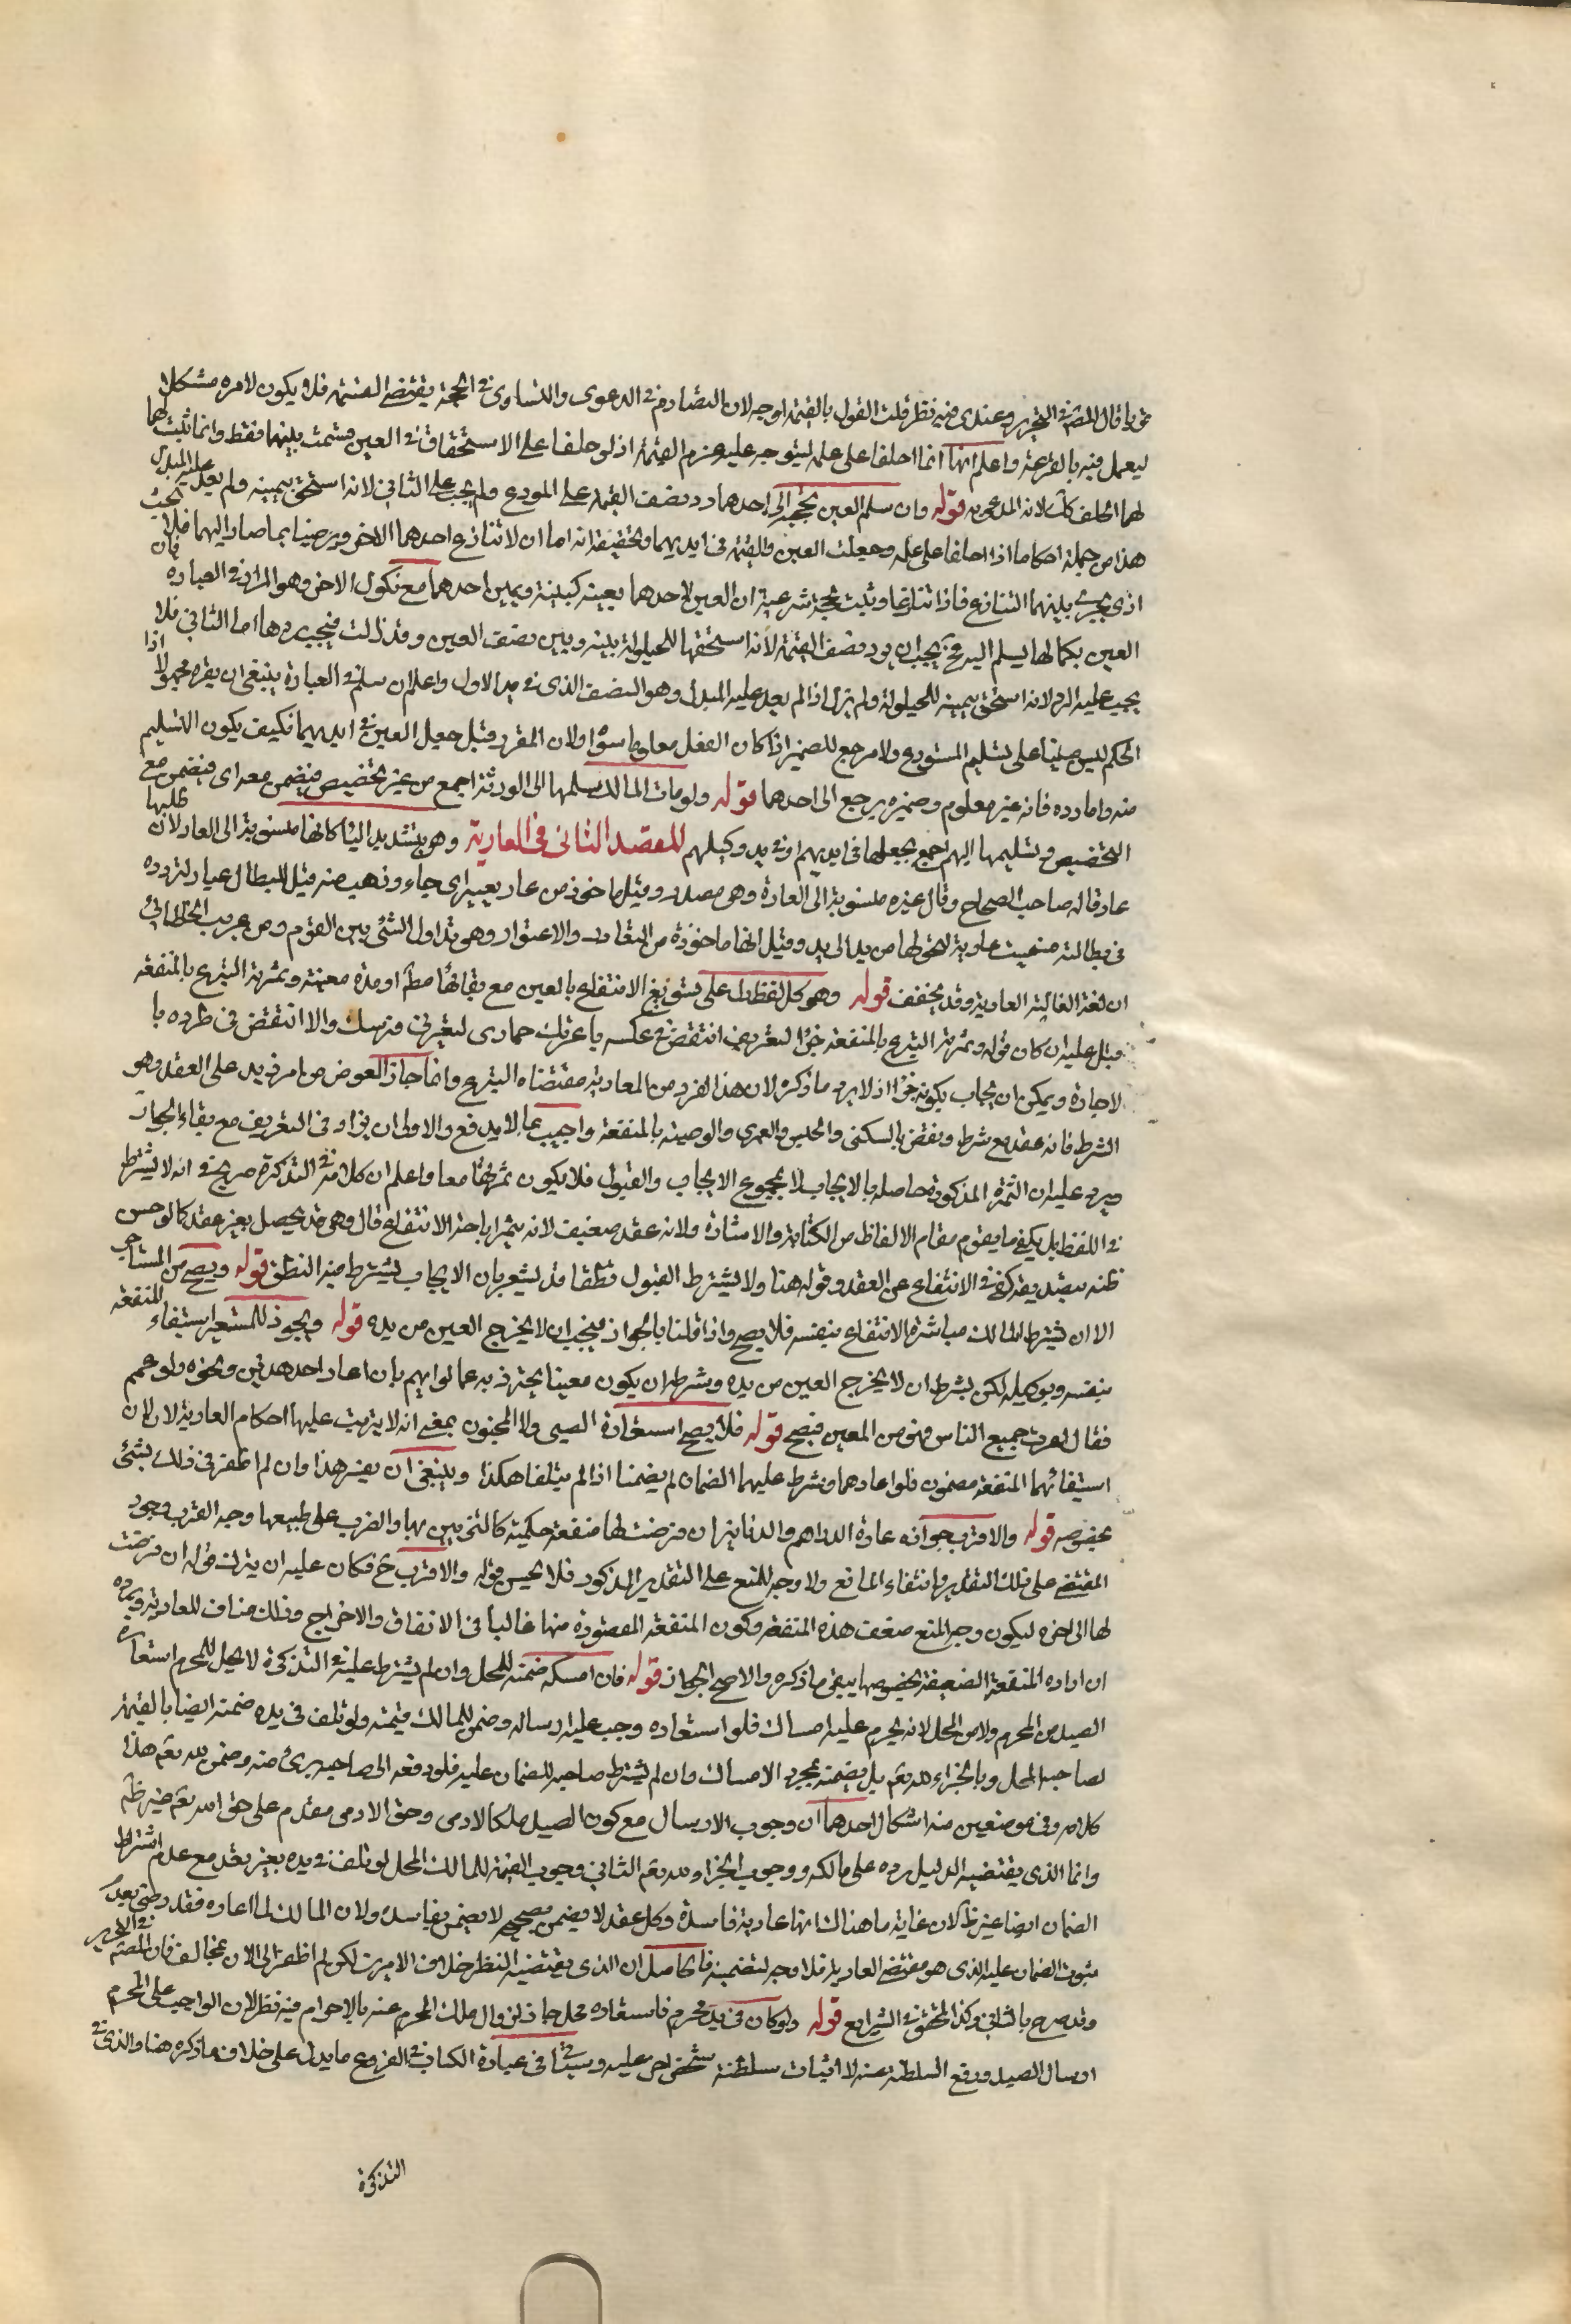 قويا قال المصنف في التحرير وعندي فيه نظر قلت القول بالقسمة اوجه لان التصادم في الدعوى والتساوي في الحجة يقتضي القسمة فلا يكون لامره مشكلا
ليعمل فيه بالقرعة واعلم انهما انما احلفا على علمه ليتوجه عليه غرم القيمة اذ لو حلفا على الاستحقاق في العين قسمت بينهما فقط وانما ثبت لهما
لهما الحلف كذلك لانه المدعى به قوله وان سلم العين بحجة الى احدهما رد نصف القيمة على المودع ولم يجب على الثاني لانه استحق بيمينه ولم يعد عليه المبدل
هذا من جملة احكام ما اذا احلفا على علمه وجعلت العين والقيمة في ايديهما وتحقيقه انه اما ان لا تنازع احدهما الاخر ويرضيا بما صار اليهما فلا بحث
اذ يجري بينهما التنازع فاذا تنازعا وثبت بحجة شرعية ان العين لاحدهما بعينه كبينة ويمين احدهما مع نكول الاخر وهو المراد في العبارة فان
العين بكمالها يسلم اليه فحينئذ يجب ان يرد نصف القيمة لانه استحقها للحيلولة بينه وبين نصف العين وقد زالت فيجب ردها اما الثاني فلا
يجب عليه الرد لانه استحق بيمينه للحيلولة ولم تزل اذ لم يعد عليه المبدل وهو النصف الذي في يد الاول واعلم ان سلم في العبارة ينبغي ان يقرء مجهولا اذا
الحكم ليس مبنيا على تسليم المستودع ولا مرجع للضمير اذا كان الفعل معلوما سواه ولان المقرر قبل جعل العين في ايديهما فكيف يكون التسليم
منه واما رده فانه غير معلوم وضميره يرجع الى احدهما قوله ولو مات المالك سلمها الى الورثة اجمع من غير تخصيص فيضمن معه اي فيضمن مع
التخصيص وتسليمها اليهم اجمع بجعلها في ايديهم او في يد وكيلهم المقصد الثاني في العارية وهو بتشديد الياء كانها منسوبة الى العار لان طلبها
عار قاله صاحب الصحاح وقال غيره منسوبة الى العارة وهي مصدر وقيل ماخوذ من عار يعير اي جاء وذهب منه قيل للبطال عيار لتردده
في بطالته فسميت عارية لتحولها من يد الى يد وقيل انها ماخوذة من التعاور والاعتوار وهو تداول الشئ بين القوم وعن غريب الخطابي
ان لغة الغالبة العارية وقد يخفف قوله وهو كل لفظ دل على تسويغ الانتفاع بالعين مع بقائها مطلقا او مدة معينة وثمرته التبرع بالمنفعة
قيل عليه ان كان قوله وثمرته التبرع بالمنفعة جزءا لتعريف انتقض في عكسه باعرتك حماري لتعيرني فرسك والا انتقض في طرده با
لاجارة ويمكن ان يجاب بكونه جزءا اذ لا يرد ما ذكر لان هذا الفرد من العارية مقتضاه التبرع وانما جاز العوض من امر زيد على العقد وهو
الشرط فانه عقد مع شرط ونقض بالسكنى والحبس والعمرى والوصية بالمنفعة واجيب بما لا يدفع والاولى ان يزاد في التعريف مع بقاء الجواز
ويرد عليه ان الثمرة المذكورة حاصله بالايجاب لا بمجموع الايجاب والقبول فلا يكون ثمرتهما معا واعلم ان كلامه في التذكرة صريح في انه لا يشترط
في اللفظ بل يكفي ما يقوم مقام الالفاظ من الكتابة والاشارة ولانه عقد ضعيف لانه يثمر اباحة الانتفاع قال وهي قد يحصل بغير عقد كما لو حسن
ظنه بصديقه كفى في الانتفاع عن العقد وقوله هنا ولا يشترط القبول نطقا قد يشعر بان الايجاب يشترط فيه النطق قوله ويصح من المستاجر
الا ان يشترط المالك مباشرة الانتفاع بنفسه فلا يصح واذا قلنا بالجواز فيجب ان لا يخرج العين من يده قوله ويجوز للمستعير استيفاء المنفعة
بنفسه وبوكيله لكن بشرط ان لا يخرج العين من يده وشرطه ان يكون معينا يحترز به عما لو ابهم بان اعار احد هذين ونحوه ولو عمم
فقال اعرت جميع الناس فهو من المعين فيصح قوله فلا يصح استعارة الصبي ولا المجنون بمعنى انه لا يترتب عليها احكام العارية لان
استيفائهما المنفعة مضمون فلو اعارهما وشرط عليهما الضمان لم يضمنا اذا لم يتلفا هكذا وينبغي ان يفسر هذا وان لم اظفر في ذلك بشئ
بخصوصه قوله والاقرب جواز اعارة الدراهم والدنانير ان فرضت لها منفعة حكمية كالتزيين بها والضرب على طبعها وجه القرب وجود
المقتضي على تلك التقدير وانتفاء المانع ولا وجه للمنع على التقدير المذكور فلا يحسن قوله والاقرب ح فكان عليه ان يترك قوله ان فرضت
لها الى اخره ليكون وجه المنع ضعف هذه المنفعة وكون المنفعة المقصودة منها غالبا في الانفاق والاخراج وذلك مناف للعارية ويرده
ان اراده المنفعة الضعيفة بخصوصها يبقى ما ذكره والاصح الجواز قوله فان امسكه ضمنه للمحل وان لم يشترط عليه في التذكرة لا يحل للمحرم استعارة
الصيد من المحرم ولا من المحل لانه يحرم عليه امساك فلو استعاره وجب عليه ارساله وضمن للمالك قيمته ولو تلف في يده ضمنه ايضا بالقيمة
لصاحبه المحل وبالجزاء لله تعالى بل يضمنه بمجرد الامساك وان لم يشترط صاحبه الضمان عليه فلو دفعه الى صاحبه برئ منه وضمن لله تعالى هذا
كلامه وفي موضعين منه اشكال احدهما ان وجوب الارسال مع كون الصيد ملكا لادمي وحق الادمي مقدم على حق الله تعالى غير ظاهر
وانما الذي يقتضيه الدليل رده على مالكه ووجوب الجزاء لله تعالى الثاني وجوب القيمة للمالك المحل لو تلف في يده بغير تعد مع عدم اشتراط
الضمان ايضا غير ظاهر لان غاية ما هناك انها عارية فاسدة وكل عقد لا يضمن بصحيحه لا يضمن بفاسده ولان المالك لما اعاره فقد رضي بعدم
ثبوت الضمان عليه الذي هو مقتضى العارية فلا وجه لتضمينه فالحاصل ان الذي يقتضيه النظر خلاف الامرين لكن لم اظفر الى الان بمخالف فان المصنف في التحرير
وقد صرح بالثاني وكذا المحقق في الشرايع قوله ولو كان في يد محرم فاستعاره محل جاز لزوال ملك المحرم عنه بالاحرام فيه نظر لان الواجب على المحرم
ارسال الصيد ورفع السلطنة عنه لا اثبات سلطنة شخص اخر عليه وسياتي في عبارة الكتاب في الفروع ما يدل على خلاف ما ذكره هنا والذي في
التذكرة